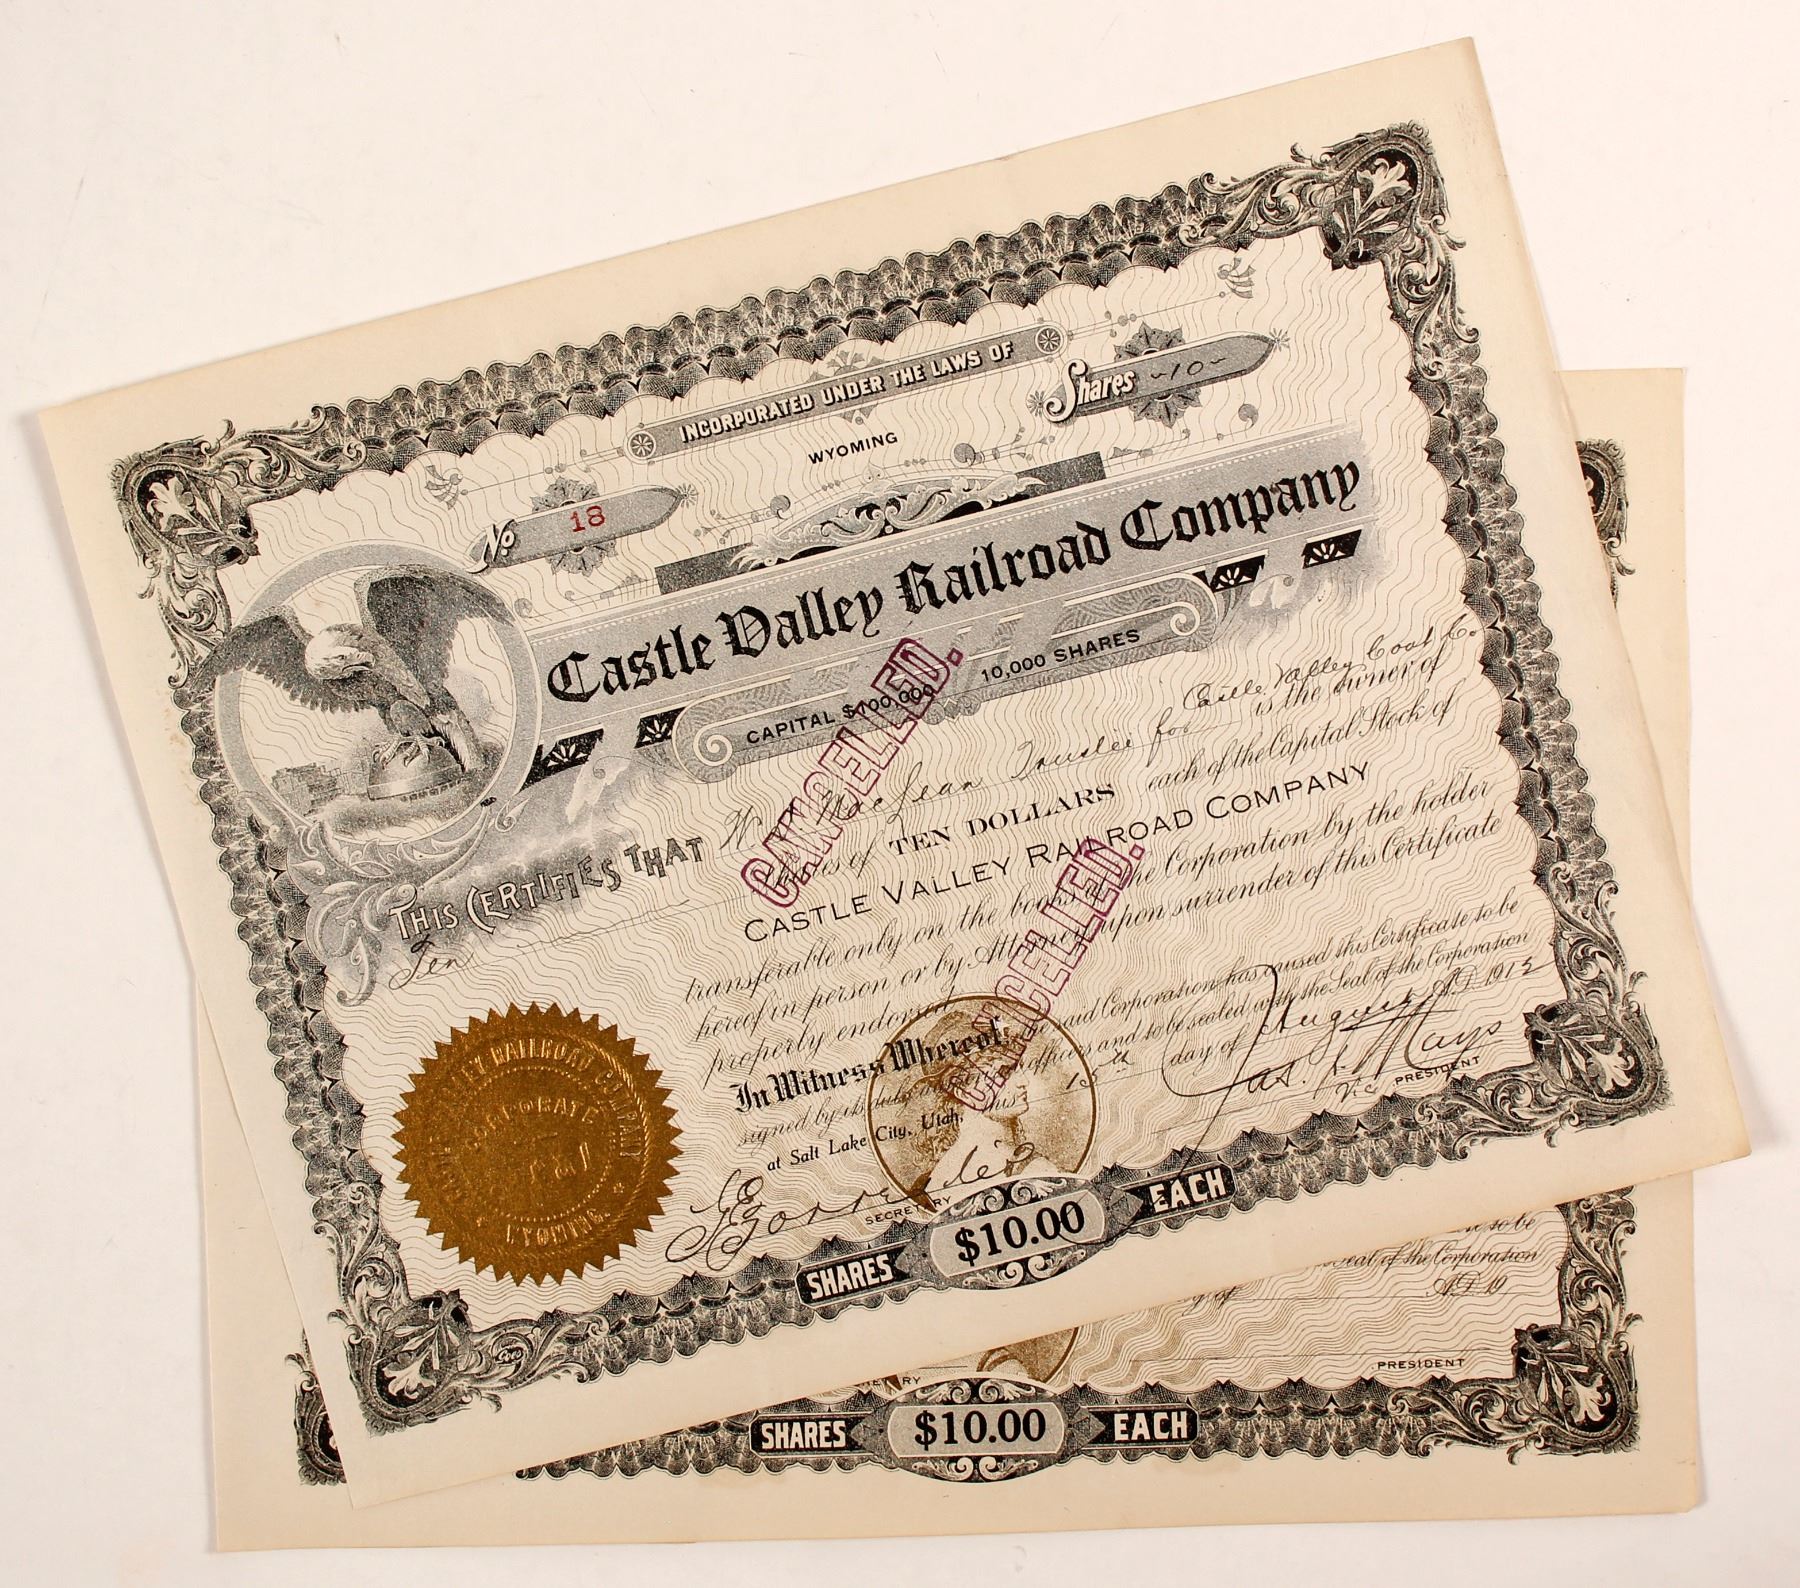 INCORPORATED UNDER THE LAWS OF
WYOMING
No 18
Shares ~10~
Castle Valley Railroad Company
CAPITAL $100,000 10,000 SHARES
CANCELLED.
THIS CERTIFIES THAT W. MacLean Trustee for Castle Valley Coal Co. is the owner of
Ten Shares of TEN DOLLARS each of the Capital Stock of
CASTLE VALLEY RAILROAD COMPANY
transferable only on the books of the Corporation by the holder
hereof in person or by Attorney upon surrender of this Certificate
properly endorsed
In Witness Whereof, the said Corporation has caused this Certificate to be
signed by its duly officers and to be sealed with the Seal of the Corporation
at Salt Lake City, Utah, this 15th day of August A.D. 1912
CANCELLED.
SECRETARY
Jas. Mays
Vice PRESIDENT
VALLEY RAILROAD COMPANY
CORPORATE
WYOMING.
SHARES $10.00 EACH
to be
Seal of the Corporation
A.D. 19
PRESIDENT
SHARES $10.00 EACH